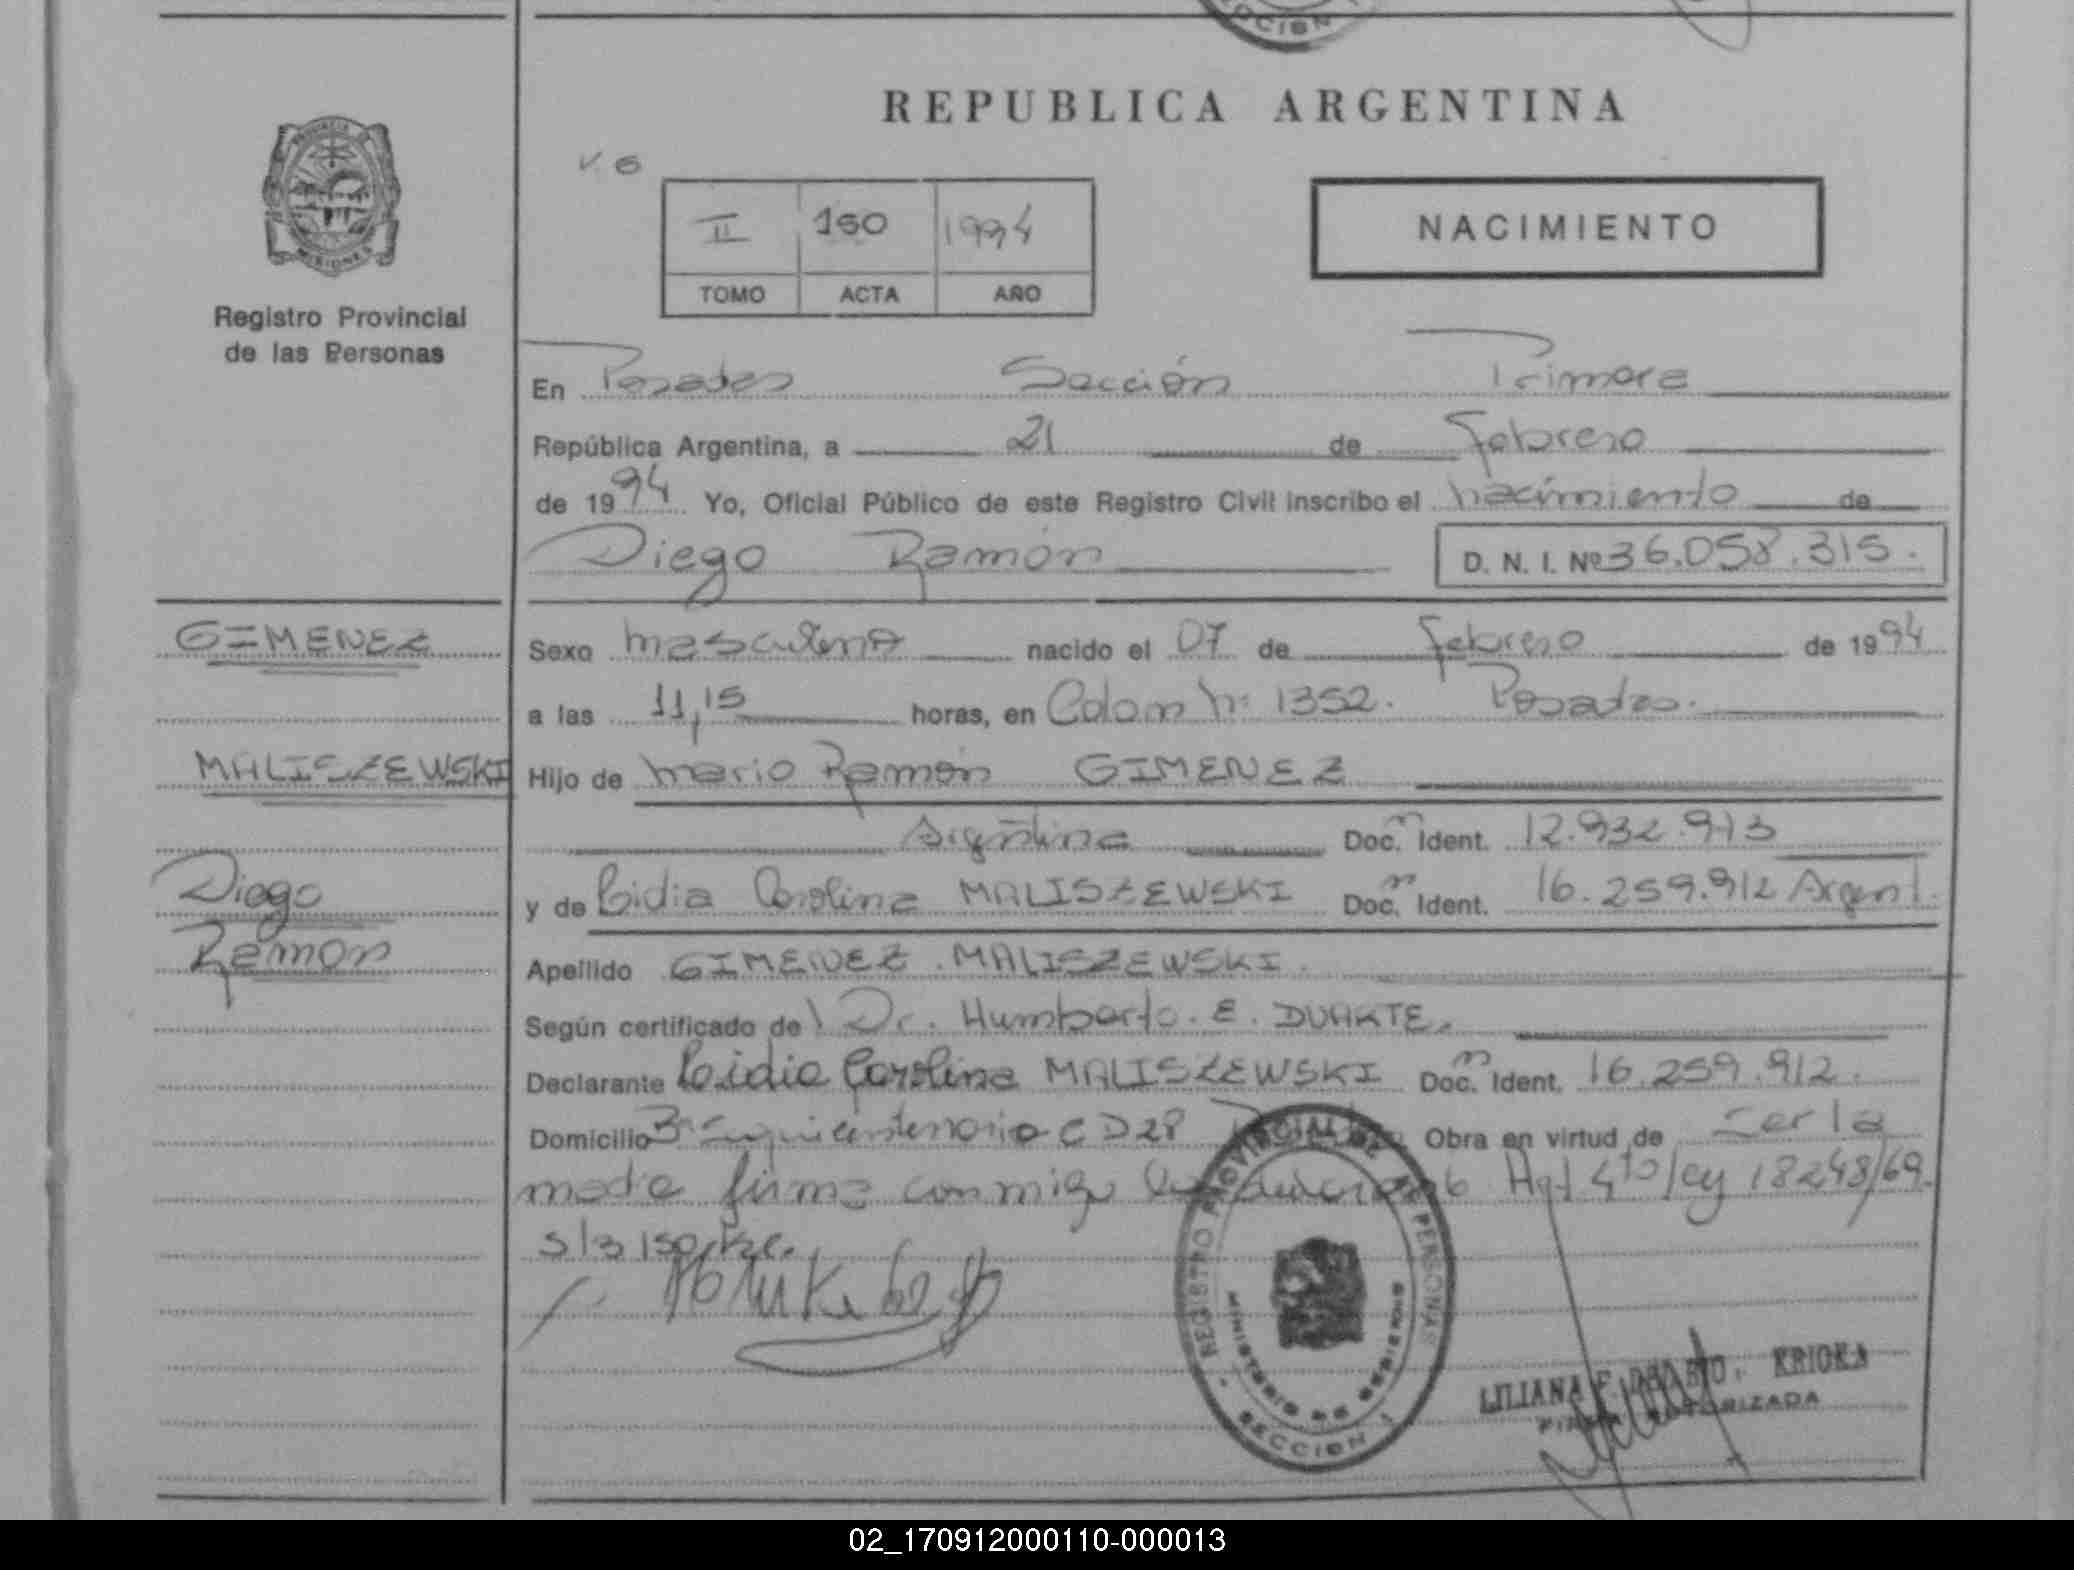 REPUBLICA ARGENTINA
PROVINCIA DE
MISIONES
Registro Provincial
de las Personas
II 150 1994
TOMO ACTA AÑO
NACIMIENTO
En Posadas Sección Primera
República Argentina, a 21 de Febrero
de 1994 Yo, Oficial Público de este Registro Civil inscribo el nacimiento de
Diego Ramón D. N. I. Nº 36.058.315.
GIMENEZ
Sexo masculino nacido el 07 de Febrero de 1994
a las 11,15 horas, en Colon Nº 1352. Posadas.
MALISZEWSKI
Hijo de Mario Ramón GIMENEZ
Argentina Doc. Ident. 12.932.913
Diego
Ramón
y de Lidia Carolina MALISZEWSKI Doc. Ident. 16.259.912 Argent.
Apellido GIMENEZ. MALISZEWSKI.
Según certificado del Dr. Humberto. E. DUARTE.
Declarante Lidia Carolina MALISZEWSKI Doc. Ident. 16.259.912.
Domicilio Obra en virtud de ser la
madre firma conmigo Art 4to ley 18248/69.
s/b 150
REGISTRO PROVINCIAL DE LAS PERSONAS
MINISTERIO DE GOBIERNO
SECCION 1
LILIANA
FIRMA AUTORIZADA
02_170912000110-000013